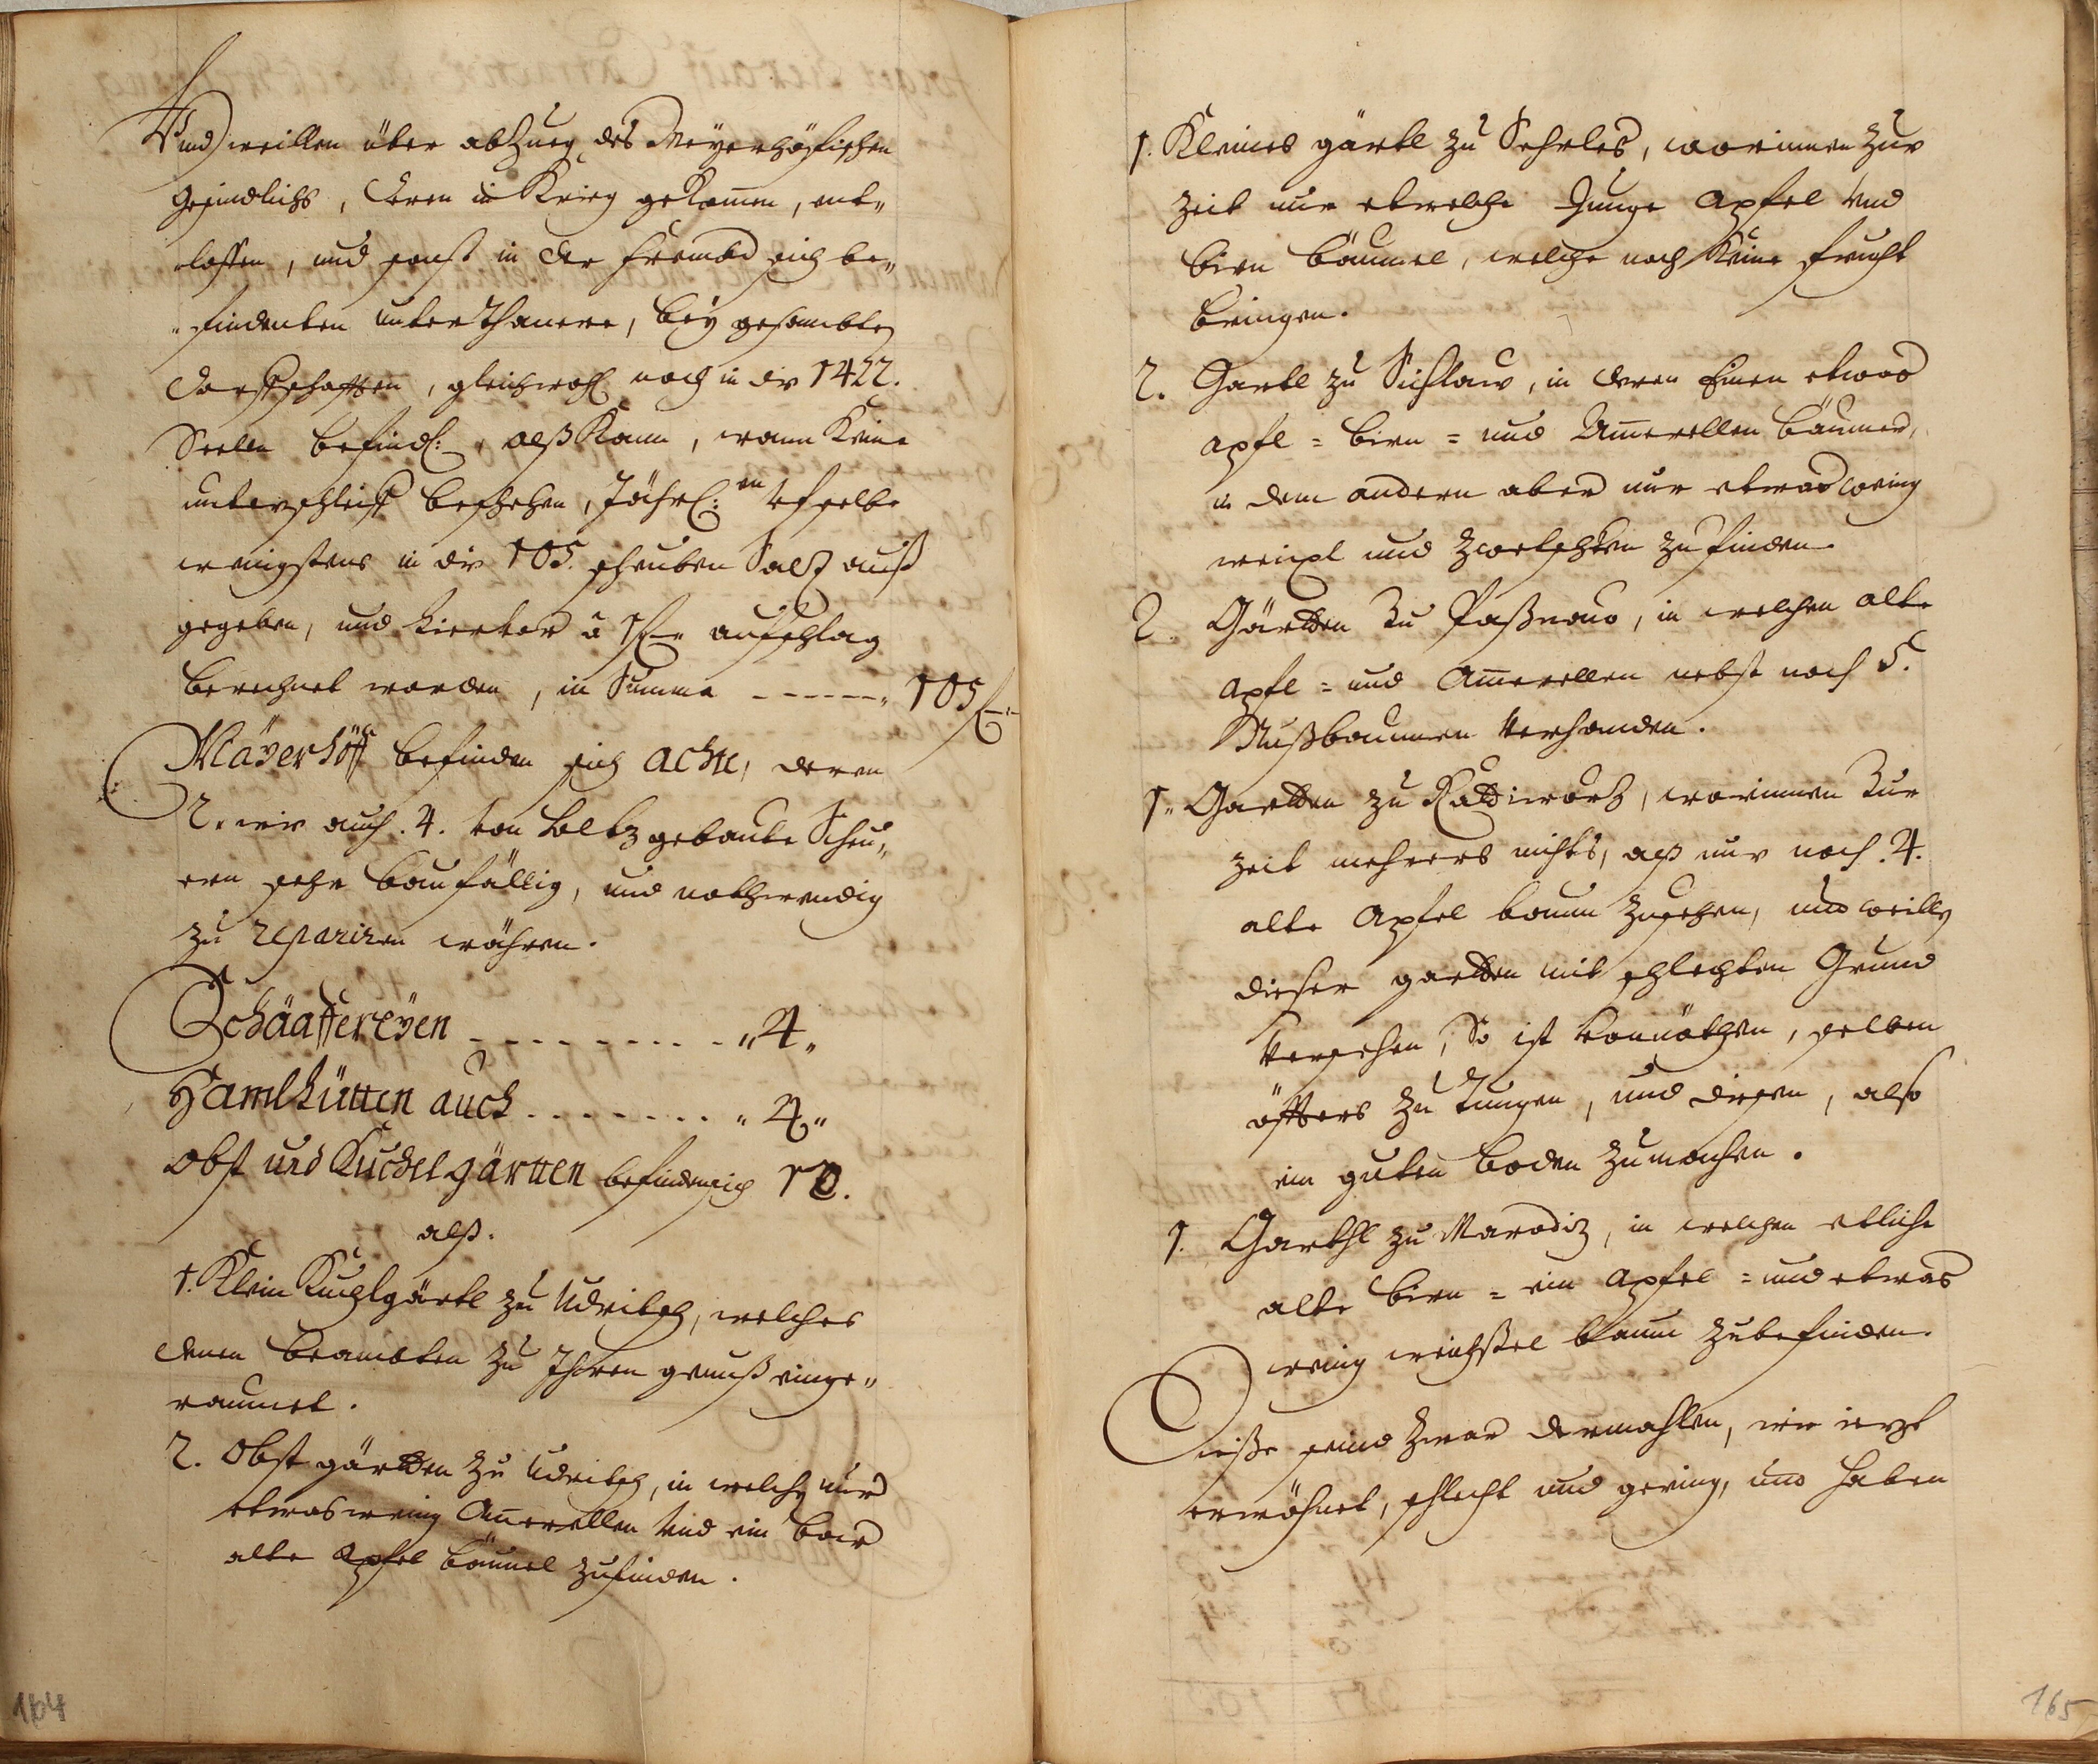 Und weillen über abzueg des Meyerhöfischen
gesindlichs, deren in Krieg gekomen, ent„
lassen, und sonst in der frembd sich be„
„findenten unterthanere, bey gesambten
dorfschafften, gleichwohl noch in die 1422.
Seelen befindl: , alß kann, wann keine
unterschleiff beschehen, Jährl:en
wenigstens in die 105. scheuben Saltz auß
gegeben, und hierbor à 1 f „ aufschlag
berechnet werden, in Summa ------„ 105 f –„
Mäyerhöff befinden sich acht, deren
2. wie auch .4. von holtz gebaute Scheu„
ern sehr baufällig, und nothwendig
zu repariren währen.
Schäaffereyen --------- „4„
Hamlhütten auch -------- „4„
Obst und Kuchelgärtten befinden sich 10.
alß.
1. Klein Kuchlgärtl zu Udritsch, welches
denen beambten zu Ihren genuß einge„
raumet.
2. Obst gärtten zu Udritsch, in welchen nur
etwas wenig Amerellen und ein baar
alte apfel bäumel zufinden.
164
1. Kleines gärtl zu Sehrles, worinnen zur
zeit nur etwelche Junge apfel und
birn bäumel, welche noch keine frucht
bringen.
2. Gartl zu Sichlau, in deren Einen etwas
apfl = birn = und Amerellen bäumer,
in dem andern aber nur etwas wenig
weixl und zwetschken zu finden.
2. Gärtten zu Paßnau, in welchen alte
apfl = und Amerellen nebst noch 5.
Nußbaumen verhanden.
1. Gartten zu, worinnen zur
zeit mehrers nichts, alß nur noch .4.
alte apfel baum zusehen, und weillen
dieser gartten mit schlechten Grund
versehen, So ist vonnöthen, selben
öffters zu tungen, und diesen, also
ein guten boden zumachen.
1. Garthl zu Maroditz, in welchen etliche
alte birn = ein apfel = und etwas
wenig weichßel baum zubefinden.
Diese seind zwar dermahlen, wie iezt
erwöhnet, schlecht und gering, und haben
165